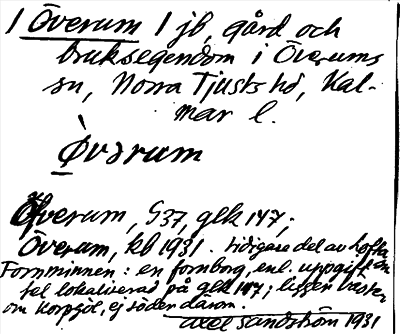 1 Överum 1 jb, gård och
bruksegendom i Överums
sn, Norra Tjusts hd, Kal-
mar l.
Ȯvərum
Öfverum, G37, glk 147;
Överum, kb 1931. tidigare del av Lofta
Fornminnen: en fornborg, enl. uppgift
fel lokaliserad på glk 147; ligger väster
om Korpsjö, ej söder därom.
Axel Sandström 1931